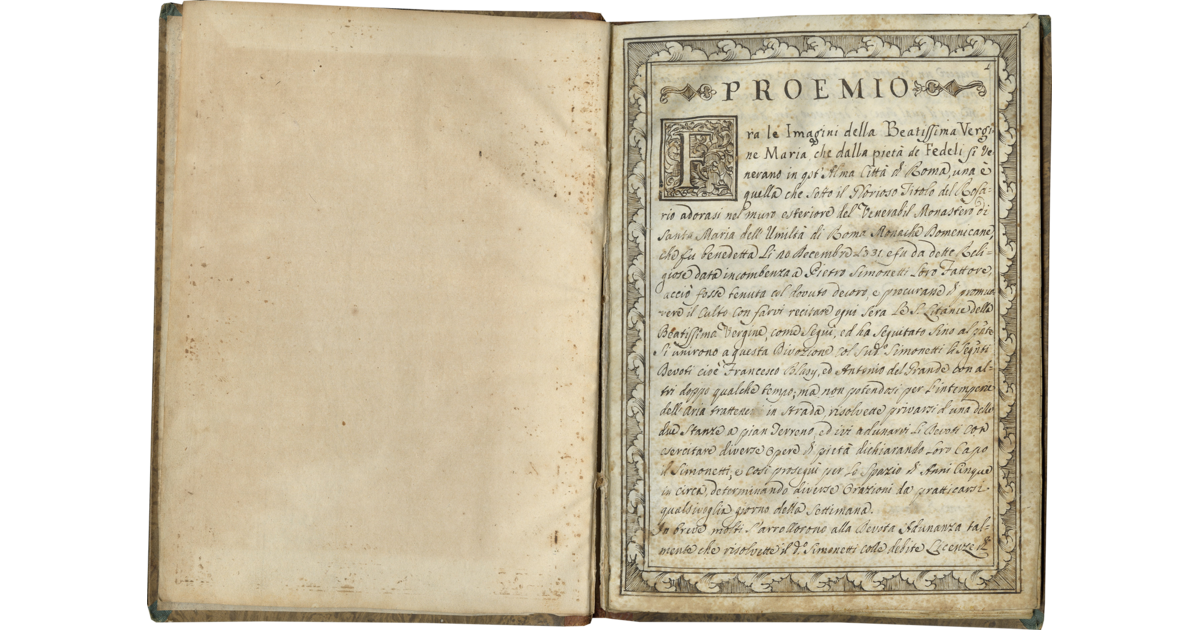 1
PROEMIO
Fra le Imagini della Beatissima Vergi-
ne Maria che dalla pietà de Fedeli si ve-
nerano in qst' Alma Città di Roma, una è
quella che sotto il Glorioso Titolo del Rosa-
rio adorasi nel muro esteriore del Venerabil Monastero di
Santa Maria dell'Umiltà di Roma Monache Domenicane,
che fu benedetta li 20 Decembre e fu da dette Reli=
giose data incombenza a Pietro Simonetti loro Fattore,
acciò fosse tenuta col dovuto decoro, e procurane di promuo-
vere il Culto con farvi recitare ogni sera le S. Litanie della
Beatissima Vergine, come seguì, ed ha seguitato sino al
Si unirono a questa Divozione col Sud.º Simonetti li
Devoti cioè Francesco ed Antonio del Grande con al-
tri doppo qualche tempo; ma non potendosi per l'intemperie
dell'Aria trattenersi in strada risolvede privarsi d'una delle
due Stanze a pian Terreno, ed ivi adunarsi li Devoti con
esercitare diverse opere di pietà dichiarando loro Capo
il Simonetti, e così proseguì per lo spazio di Anni Cinque
in circa, determinando diverse Orazioni da pratticarsi
qualsivoglia giorno della Settimana.
In breve molti s'arrollorono alla Devota Adunanza tal-
mente che risolvette il d.º Simonetti colle debite Licenze